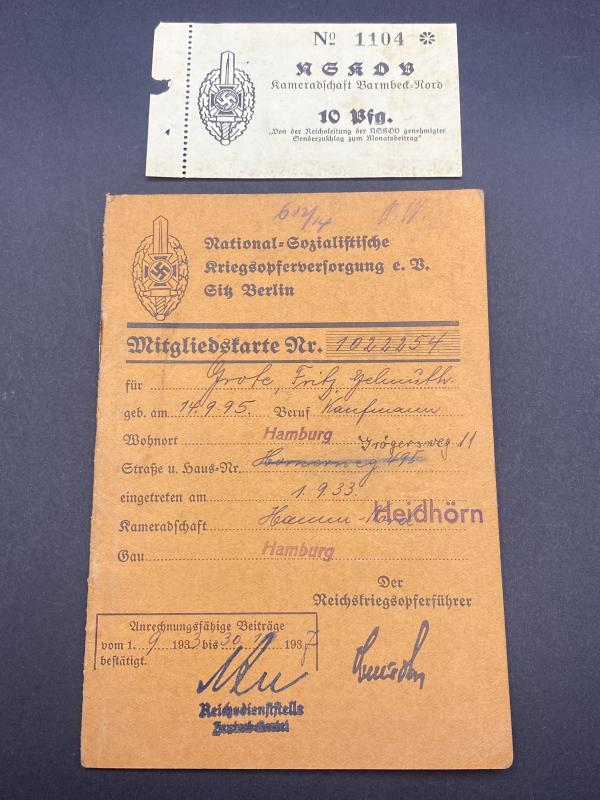 Nº 1104 ✻
NSKOV
Kameradschaft Barmbeck-Nord
10 Pfg.
„Von der Reichsleitung der NSKOV genehmigter
Sonderzuschlag zum Monatsbeitrag"
612/14
National-Sozialistische
Kriegsopferversorgung e. V.
Sitz Berlin
Mitgliedskarte Nr. 1022254
für Grote, Fritz Helmuth.
geb. am 14.9.95. Beruf Kaufmann
Wohnort Hamburg
Straße u. Haus-Nr. Hornerweg 495 11
eingetreten am 1.9.33.
Kameradschaft Hamm-Nord Heidhörn
Gau Hamburg
Der
Reichskriegsopferführer
Anrechnungsfähige Beiträge
vom 1. 9 1933 bis 30. 1937
bestätigt.
Reichsdienststelle